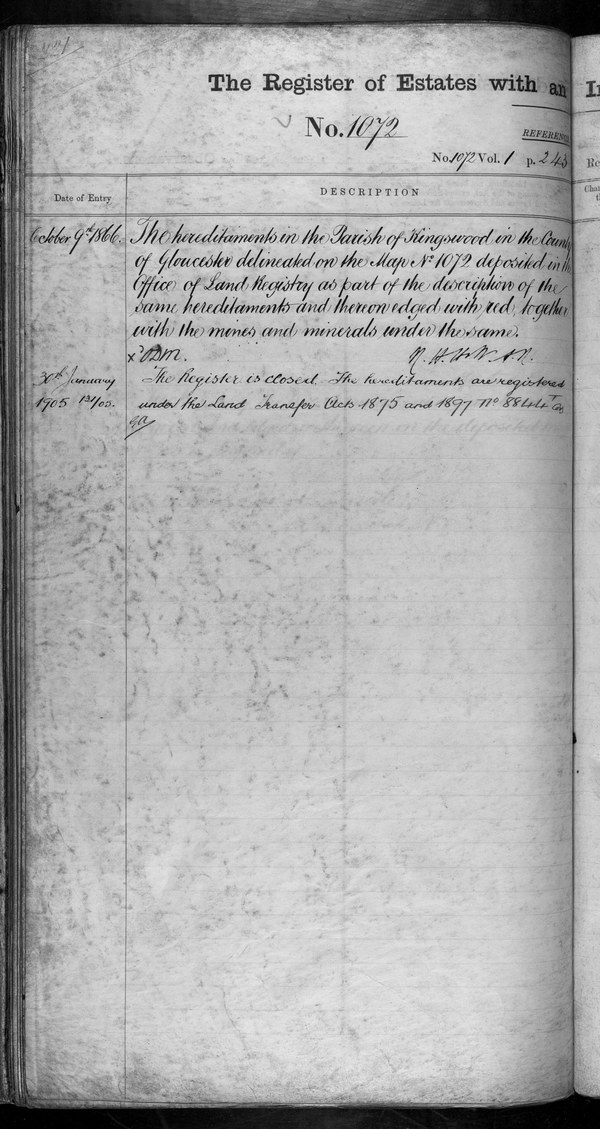 The Register of Estates with an
No. 1072
REFERENC
No. 1072 Vol. 1 p. 243
Date of Entry
DESCRIPTION
October 9th 1866.
The hereditaments in the Parish of Kingswood in the County
of Gloucester delineated on the Map No 1072 deposited in the
Office of Land Registry as part of the description of the
same hereditaments and thereon edged with red, together
with the mines and minerals under the same.
30th January
The Register is closed. The hereditaments are registered
1905 131/05.
under the Land Transfer Acts 1875 and 1897 No 8844
In
Re
Cha